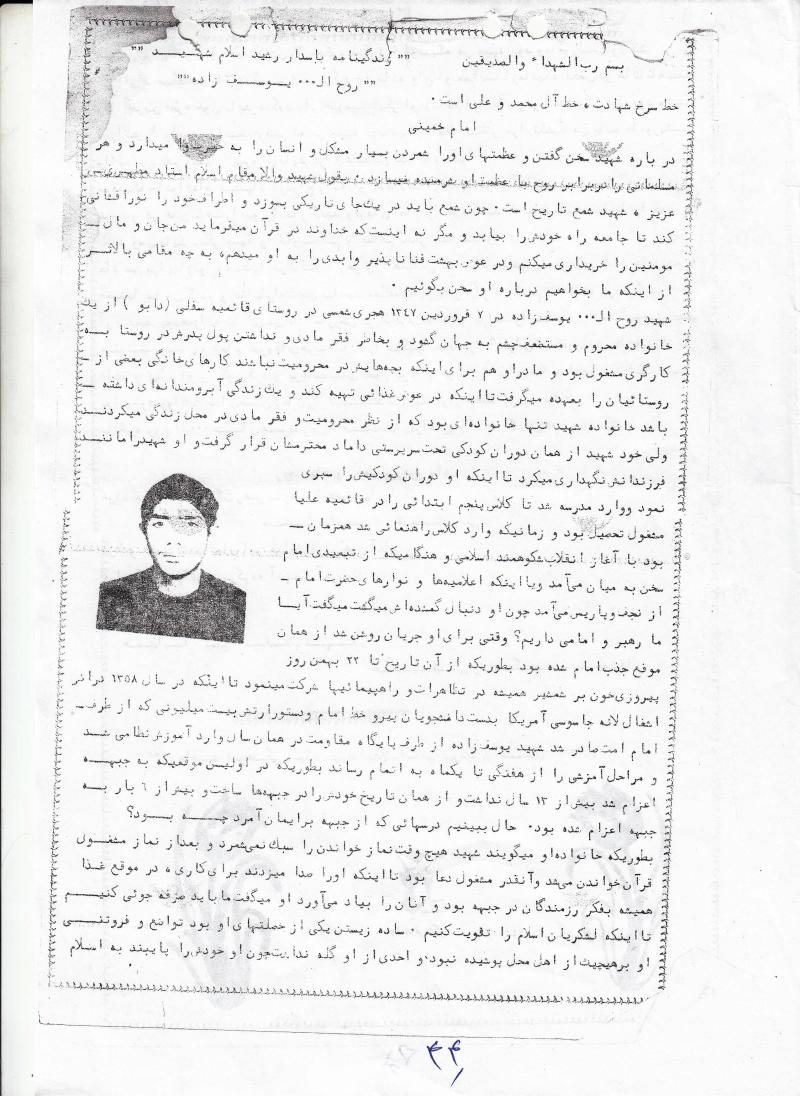 بسم رب الشهداء والصدیقین "" زندگینامه پاسدار رشید اسلام شهیـــد ""
"" روح الـ... یوسـف زاده ""
خط سرخ شهادت ، خط آل محمد و علی است .
امام خمینی
در باره شهید سخن گفتن و عظمتهای اورا شمردن بسیار مشکل و انسان را به وا میدارد و هر
مسلمانی را در برابر روح با عظمت او شرمنده میسازد . بقول شهید والا مقام اسلام استاد مطهـری
عزیز ، شهید شمع تاریخ است . چون شمع باید در یک جای تاریکی بسوزد و اطراف خود را نورافشانی
کند تا جامعه راه خودش را بیابد و مگر نه اینست که خداوند در قرآن میفرماید من جان و مال
مومنین را خریداری میکنم ودر عوض بهشت فنا ناپذیر وابدی را به او میدهم ، به چه مقامی بالاتـر
از اینکه ما بخواهیم درباره او سخن بگوئیم .
شهید روح الـ... یوسف زاده در ۷ فروردین ۱۳۴۷ هجری شمسی در روستای قائمیه سفلی (دابو ) از یک
خانواده محروم و مستضعف چشم به جهان گشود و بخاطر فقر مادی و نداشتن پول پدرش در روستا بـــه
کارگری مشغول بود و مادر او هم برای اینکه بچه هایش در محرومیت نباشند کارهای خانگی بعضی از
روستائیان را بعهده میگرفت تا اینکه در عوض غذائی تهیه کند و یک زندگی آبرومندانه ای داشته
باشد خانواده شهید تنها خانواده ای بود که از نظر محرومیت و فقر مادی در محل زندگی میکردنــد
ولی خود شهید از همان دوران کودکی تحت سرپرستی داماد محترمشان قرار گرفت و او شهید را ماننــد
فرزندانش نگهداری میکرد تا اینکه او دوران کودکیش را سپری
نمود ووارد مدرسه شد تا کلاس پنجم ابتدائی را در قائمیه علیا
مشغول تحصیل بود و زمانیکه وارد کلاس راهنمائی شد همزمان
بود با آغاز انقلاب شکوهمند اسلامی و هنگامیکه از تبعیدی امام
سخن به میان می آمد ویا اینکه اعلامیه ها و نوارهای حضرت امام
از نجف و پاریس می آمد چون او دنبال گمشده اش میگشت میگفت آیـا
ما رهبر و امامی داریم؟ وقتی برای او جریان روشن شد از همان
موقع جذب امام شده بود بطوریکه از آن تاریخ تا ۲۲ بهمن روز
پیروزی خون بر شمشیر همیشه در تظاهرات و راهپیمائیها شرکت مینمود تا اینکه در سال ۱۳۵۸ در اثر
اشغال لانه جاسوسی آمریکا بدست دانشجویان پیرو خط امام و دستور ارتش بیست میلیونی که از طرف
امام امت صادر شد شهید یوسف زاده از طرف پایگاه مقاومت در همان سال وارد آموزش نظامی شــد
و مراحل آمزشی را از هفتگی تا یکماه به اتمام رساند بطوریکه در اولین موقعیکه به جبهـــه
اعزام شد بیش از ۱۳ سال نداشت و از همان تاریخ خودش را در جبهه ها ساخت و بیش از ۶ بار بـه
جبهه اعزام شده بود . حال ببینیم درسهائی که از جبهه برایمان آمرد چـــه بــــود؟
بطوریکه خانواده او میگویند شهید هیچ وقت نماز خواندن را سبک نمی شمرد و بعداز نماز مشغـول
قرآن خواندن می شد و آنقدر مشغول دعا بود تا اینکه اورا صدا میزدند برای کاری ، در موقع غـذا
همیشه بفکر رزمندگان در جبهه بود و آنان را بیاد می آورد او میگفت ما باید صرفه جوئی کنیــم
تا اینکه لشکریان اسلام را تقویت کنیم . ساده زیستن یکی از خصلتهای او بود تواضع و فروتنــی
او بر هیچیک از اهل محل پوشیده نبود . و احدی از او گله نداشت چون او خودش را پایبند به اسـلام
۴۴